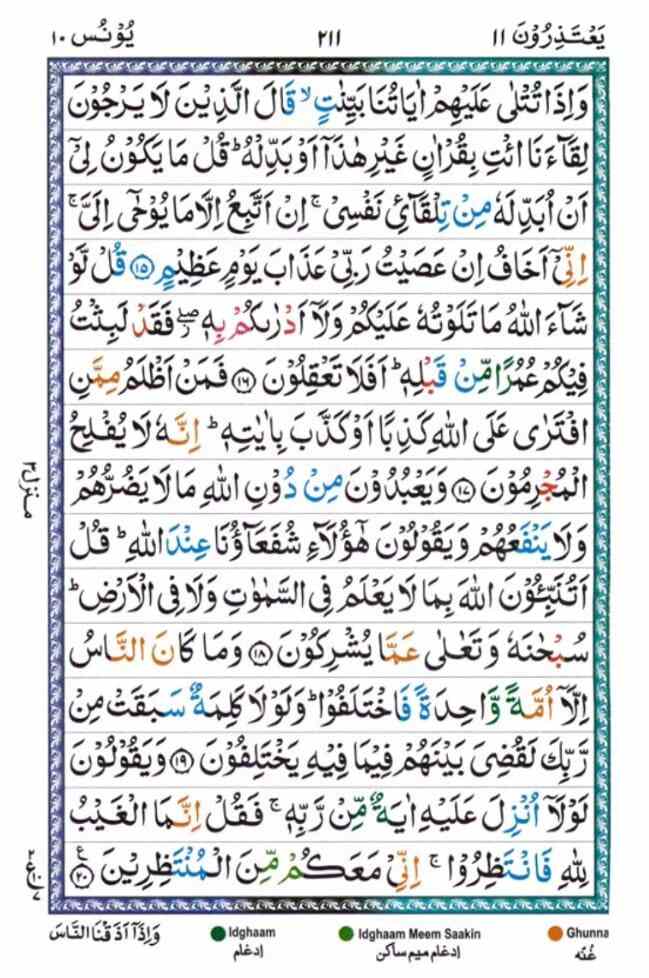 يَعْتَذِرُوْنَ ١١
٢١١
يُوْنُس ١٠
وَاِذَا تُتْلٰى عَلَيْهِمْ اٰيَاتُنَا بَيِّنٰتٍ ۙ قَالَ الَّذِيْنَ لَا يَرْجُوْنَ
لِقَآءَنَا ائْتِ بِقُرْاٰنٍ غَيْرِ هٰذَآ اَوْ بَدِّلْهُ ؕ قُلْ مَا يَكُوْنُ لِيْٓ
اَنْ اُبَدِّلَهٗ مِنْ تِلْقَآئِ نَفْسِيْ ۚ اِنْ اَتَّبِعُ اِلَّا مَا يُوْحٰٓى اِلَيَّ ۚ
اِنِّيْٓ اَخَافُ اِنْ عَصَيْتُ رَبِّيْ عَذَابَ يَوْمٍ عَظِيْمٍ ١٥ قُلْ لَّوْ
شَآءَ اللّٰهُ مَا تَلَوْتُهٗ عَلَيْكُمْ وَلَآ اَدْرٰىكُمْ بِهٖ ۖ فَقَدْ لَبِثْتُ
فِيْكُمْ عُمُرًا مِّنْ قَبْلِهٖ ؕ اَفَلَا تَعْقِلُوْنَ ١٦ فَمَنْ اَظْلَمُ مِمَّنِ
افْتَرٰى عَلَى اللّٰهِ كَذِبًا اَوْ كَذَّبَ بِاٰيٰتِهٖ ؕ اِنَّهٗ لَا يُفْلِحُ
الْمُجْرِمُوْنَ ١٧ وَيَعْبُدُوْنَ مِنْ دُوْنِ اللّٰهِ مَا لَا يَضُرُّهُمْ
وَلَا يَنْفَعُهُمْ وَيَقُوْلُوْنَ هٰٓؤُلَآءِ شُفَعَآؤُنَا عِنْدَ اللّٰهِ ؕ قُلْ
اَتُنَبِّـُٔوْنَ اللّٰهَ بِمَا لَا يَعْلَمُ فِى السَّمٰوٰتِ وَلَا فِى الْاَرْضِ ؕ
سُبْحٰنَهٗ وَتَعٰلٰى عَمَّا يُشْرِكُوْنَ ١٨ وَمَا كَانَ النَّاسُ
اِلَّآ اُمَّةً وَّاحِدَةً فَاخْتَلَفُوْا ؕ وَلَوْلَا كَلِمَةٌ سَبَقَتْ مِنْ
رَّبِّكَ لَقُضِيَ بَيْنَهُمْ فِيْمَا فِيْهِ يَخْتَلِفُوْنَ ١٩ وَيَقُوْلُوْنَ
لَوْلَآ اُنْزِلَ عَلَيْهِ اٰيَةٌ مِّنْ رَّبِّهٖ ۚ فَقُلْ اِنَّمَا الْغَيْبُ
لِلّٰهِ فَانْتَظِرُوْا ۚ اِنِّيْ مَعَكُمْ مِّنَ الْمُنْتَظِرِيْنَ ٢٠
منزل ٣
وَاِذَآ اَذَقْنَا النَّاسَ
Idghaam
ادغام
Idghaam Meem Saakin
ادغام میم ساکن
Ghunna
غُنّه